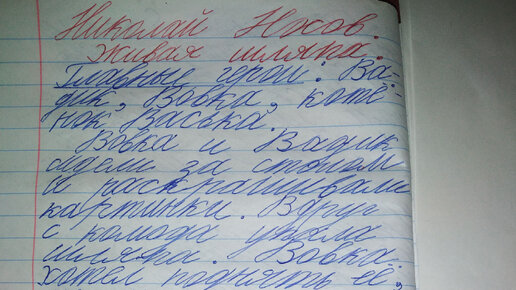 Николай Носов.
Живая шляпа.
Главные герои: Ва-
дик, Вовка, котё-
нок Васька.
Вовка и Вадик
сидели за столом
и раскрашивали
картинки. Вдруг
с комода упала
шляпа. Вовка
хотел поднять её,